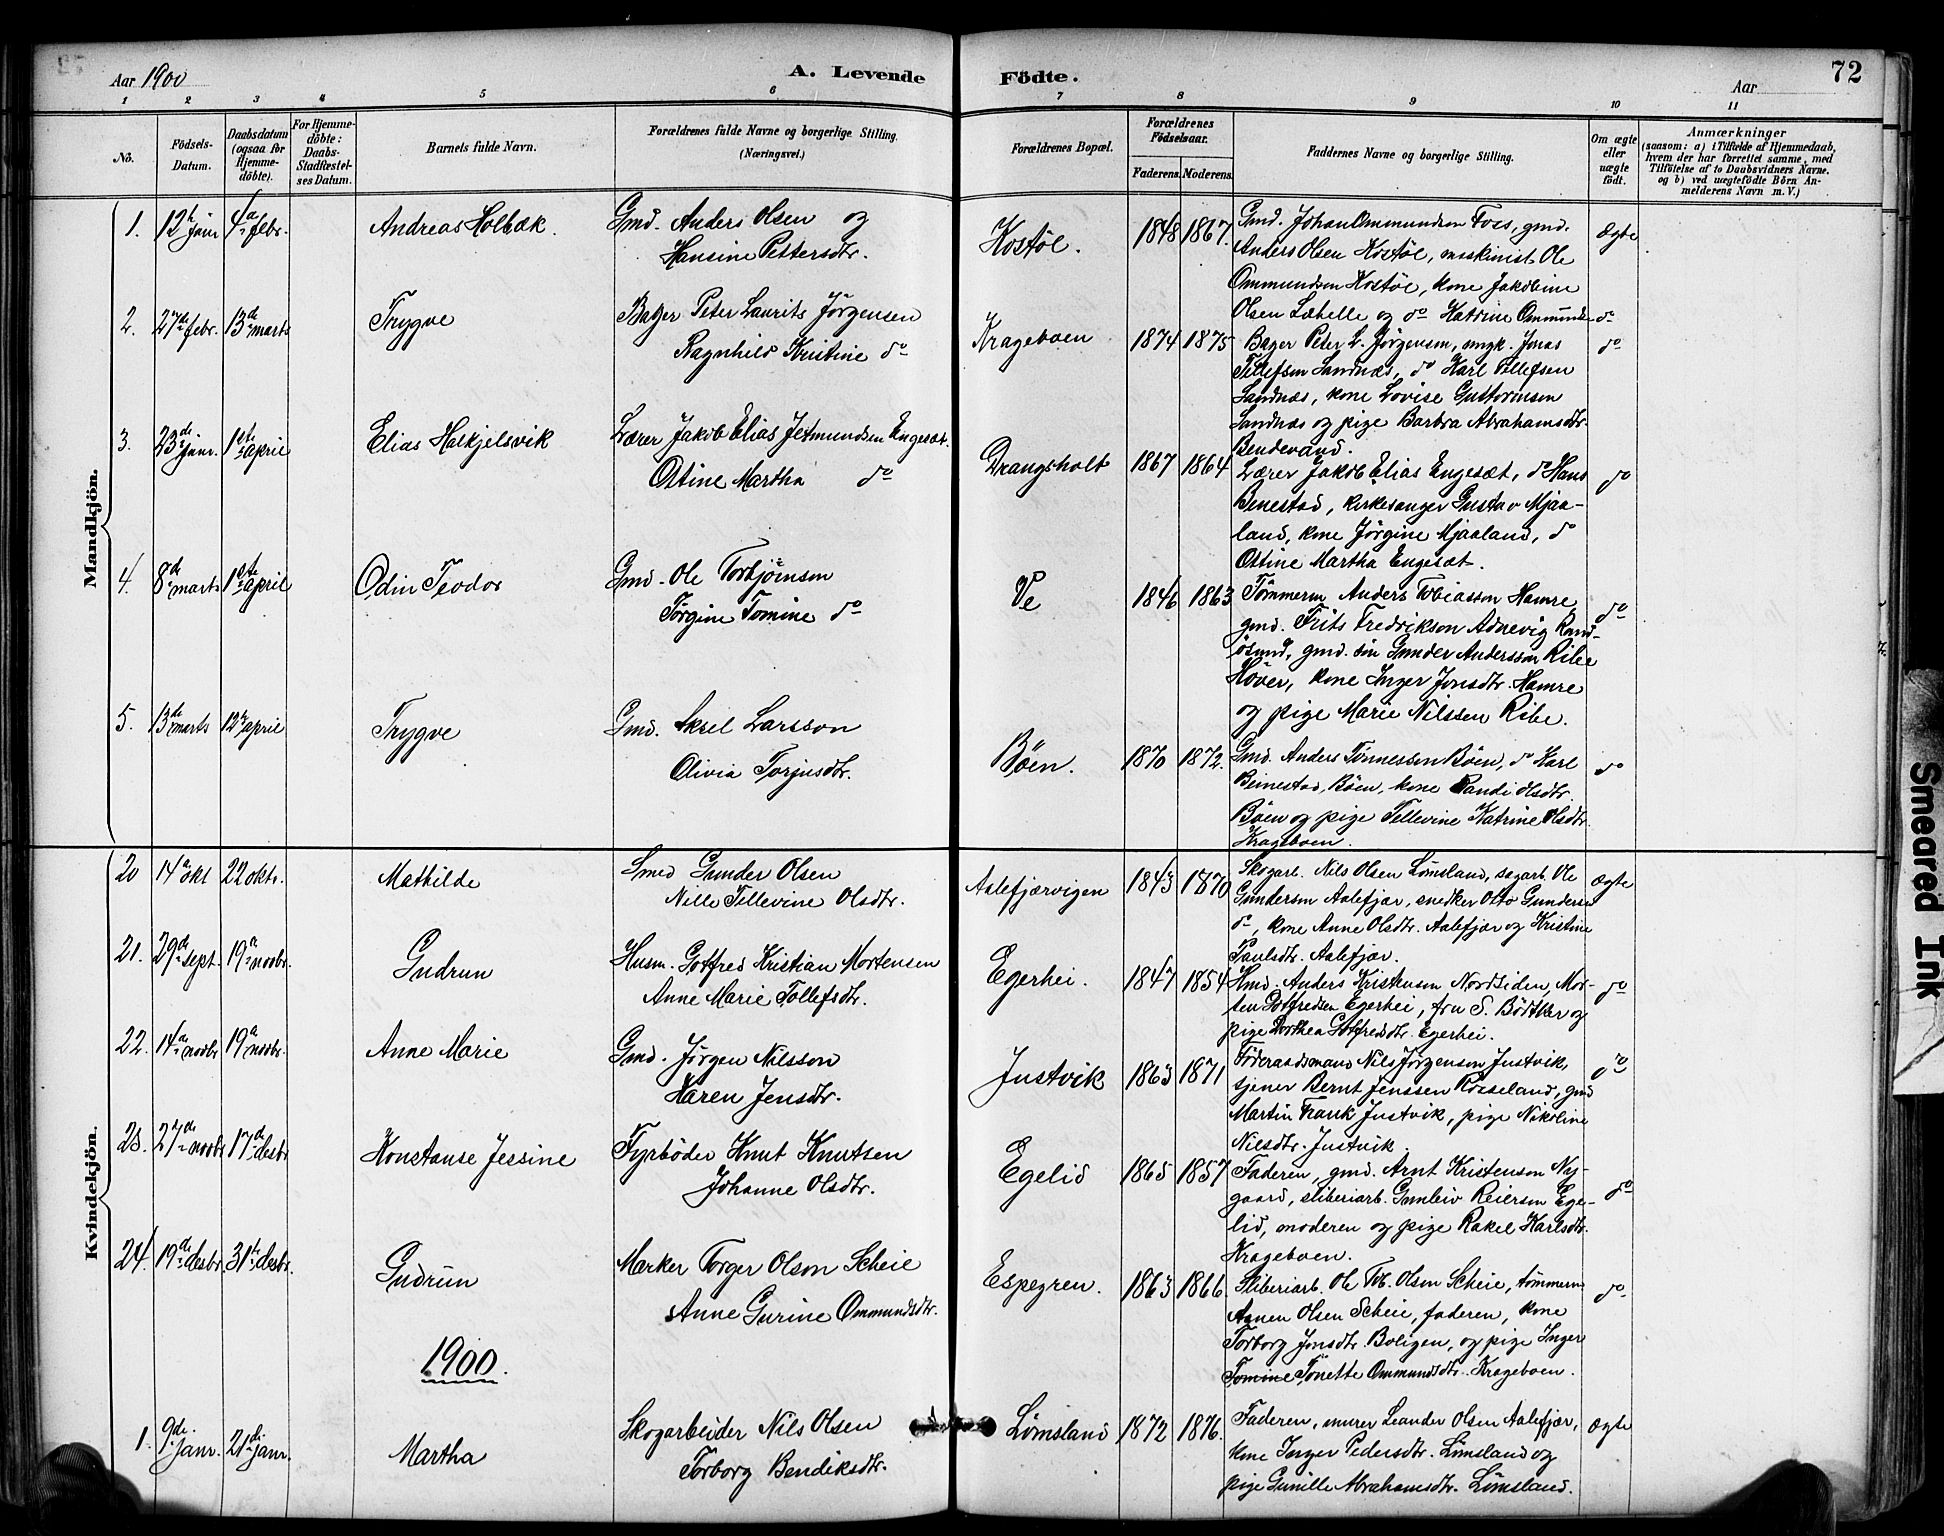 Aar 1900
A. Levende Födte.
Aar
72
1 2 3 4 5 6 7 8 9 10 11
No.
Födsels-Datum.
Daabsdatum (ogsaa for Hjemme-döbte).
For Hjemme-döbte: Daabs-Stadfestel-ses Datum.
Barnets fulde Navn.
Forældrenes fulde Navne og borgerlige Stilling. (Næringsvei.)
Forældrenes Bopæl.
Forældrenes Födselsaar.
Faderens. Moderens.
Faddernes Navne og borgerlige Stilling.
Om ægte eller uægte födt.
Anmærkninger
(saasom: a) i Tilfælde af Hjemmedaab, hvem der har forrettet samme, med Tilföielse af to Daabsvidners Navne, og b) ved uægtefödte Börn An-melderens Navn m. V.)
Mandkjön.
1. 12te janr 4a febr. Andreas Holbæk. Gmd. Anders Olsen og
Hansine Pettersdtr.
Kostøl. 1848 1867.
Gmd. Johan Ommundsen Foss, gmd.
Anders Olsen Kostøl, maskinist Ole
Ommundsen Kostøl, kone Jakobine
Olsen Læhelle og do Katrine Ommundsen do
Ægte
2. 27de febr. 13de marts Trygve
Bager Peter Laurits Jørgensen
Ragnhild Kristine do
Krageboen 1874 1875
Bager Peter L. Jørgensen, ungk. Jonas
Tellefsen Sandnæs, do Karl Tellefsen
Sandnæs, kone Lovise Guttormsen
Sandnæs og pige Barbra Abrahamsdtr.
Bendevand.
do
3. 23de janr. 1ste april Elias Halkjelsvik
Lærer Jakob Elias Jetmundsen Engesæt.
Ostine Martha do
Drangsholt 1867 1864
Lærer Jakob Elias Engesæt, do Hans
Benestad, kirkesanger Gustav Mjaa-
land, kone Jørgine Mjaaland, do
Ostine Martha Engesæt.
do
4. 8de marts 1ste april Odin Teodor
Gmd. Ole Torbjørnsen
Jørgine Tomine do
Ve 1846 1863
Tømmerm Anders Tobiasson Hamre,
gmd. Frits Fredrikson Adnevig Rand-
øsund, gmd. søn Gunder Andersson Ribe
Høver, kone Inger Jonsdtr. Hamre
og pige Marie Nilssen Ribe.
do
5. 13de marts 12te april Trygve
Gmd. Aksel Larsson
Olivia Torjusdtr.
Bøen. 1870 1872.
Gmd. Anders Tønnesson Bøen, do Karl
Beinestad, Bøen, kone Randi Olsdtr.
Bøen og pige Tellevine Katrine Olsdtr.
Krageboen.
do
Kvindekjön.
20 14a okt 22 oktr. Mathilde
Smed Gunder Olsen
Nille Tellevine Olsdtr.
Aalefjærvigen 1843 1870
Skogarb. Nils Olsen Lømsland, sagarb. Ole
Gundersen Aalefjær, snedker Otto Gundersen
do, kone Anne Olsdtr. Aalefjær og Kristine
Paulsdtr. Aalefjær.
Ægte
21. 29de sept. 19a novbr. Gudrun
Husm. Gotfred Kristian Mortensen
Anne Marie Tollefsdtr.
Egerhei. 1847 1854
Hmd. Anders Kristensen Nordsiden, Mor-
ten Gotfredsen Egerhei, fru S. Bødtker og
pige Dorthea Gotfredsdtr. Egerhei.
do
22. 14a novbr 19a novbr. Anne Marie
Gmd. Jørgen Nilsson
Karen Jensdtr.
Justvik 1863 1871
Føderaadsmand Nils Jørgenson Justvik,
tjener Bernt Jenssen Rosseland, gmd
Martin Frank Justvik, pige Nikoline
Nilsdtr. Justvik.
do
23. 27de novbr 17de desbr Konstanse Jessine
Fyrbøder Knut Knutsen
Johanne Olsdtr.
Egelid 1865 1857
Faderen, gmd. Arnt Kristenson Ny-
gaard, sliberiarb. Gunleiv Reierson Ege-
lid, moderen og pige Rakel Karlsdtr.
Krageboen.
do
24. 19de desbr 31te desbr. Gudrun
Mærker Torger Olson Scheie
Anne Gurine Ommundsdtr.
Espegren. 1863 1866.
Sliberiarb. Ole Tob. Olson Scheie, tømmerm
Aanen Olsen Scheie, faderen, kone
Torborg Jonsdtr. Boligen, og pige Inger
Tomine Tonette Ommundsdtr. Krageboen.
do
1900.
1. 9de janr. 21de janr. Martha
Skogarbeider Nils Olsen
Torborg Bendiksdtr.
Lømsland 1872 1876.
Faderen, murer Leander Olsen Aalefjær,
kone Inger Pedersdtr. Lømsland og
pige Gunille Abrahamsdtr. Lømsland.
Ægte
Smeared Ink